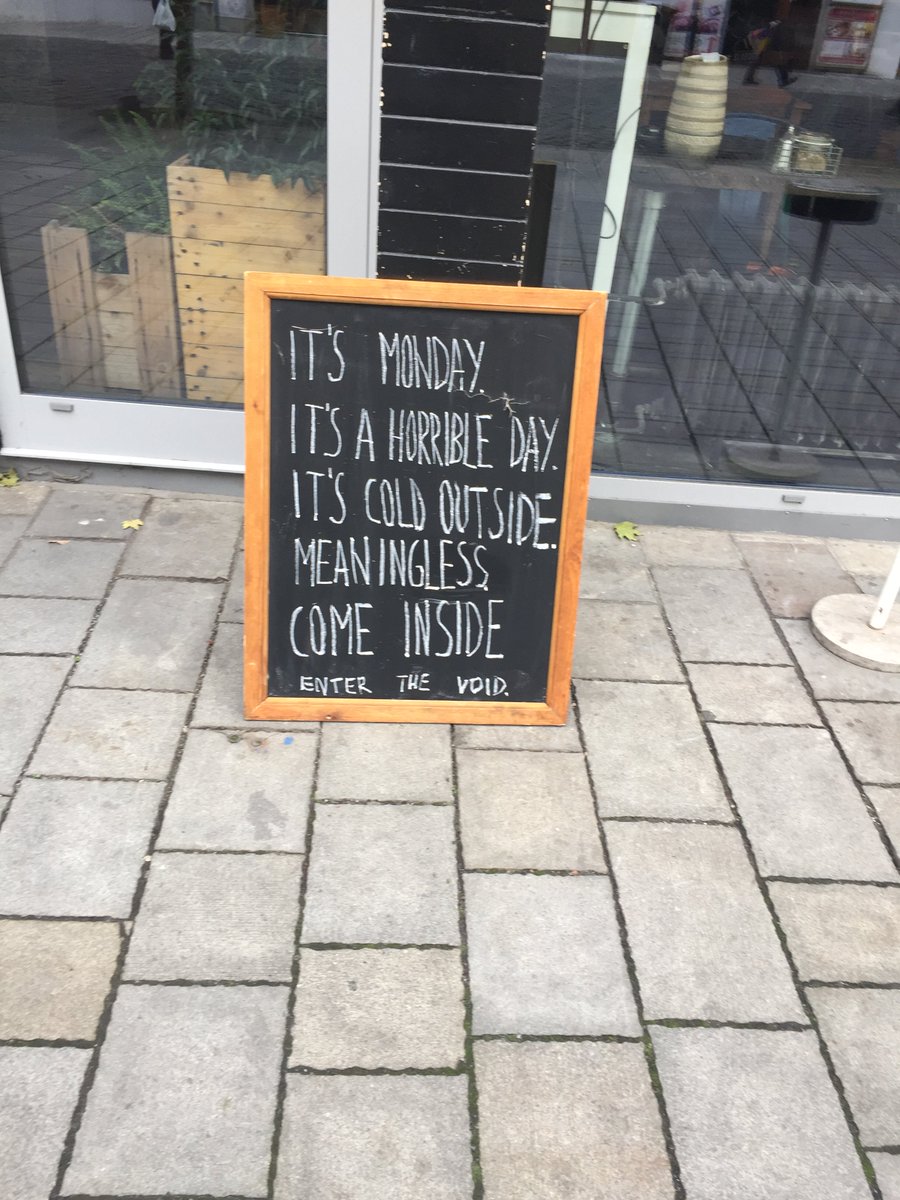 IT'S MONDAY.
IT'S A HORRIBLE DAY.
IT'S COLD OUTSIDE.
MEANINGLESS.
COME INSIDE
ENTER THE VOID.